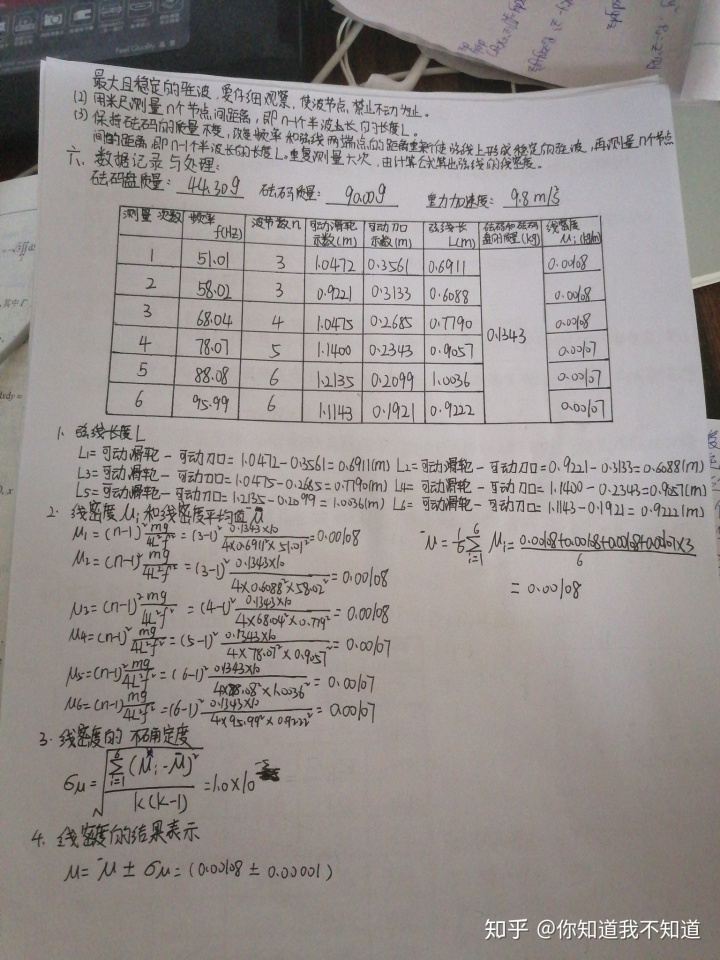 最大且稳定的驻波，要仔细观察，使波节点，禁止不动为止。
(2) 用米尺测量n个节点间距离，即n-1个半波长的长度L。
(3) 保持砝码的质量不变，改变频率和弦线两端点的距离重新使弦线上形成稳定的驻波，再测量n个节点
间的距离，即n-1个半波长的长度L。重复测量六次，由计算公式算出弦线的线密度。
六、数据记录与处理：
砝码盘质量：44.30g 砝码质量：90.00g 重力加速度：9.8m/s²
测量次数 频率f(Hz) 波节数n 可动滑轮示数(m) 可动刀口示数(m) 弦线长L(m) 砝码和砝码盘的质量(kg) 线密度μi(kg/m)
1 51.01 3 1.0472 0.3561 0.6911 0.1343 0.00108
2 58.02 3 0.9221 0.3133 0.6088 0.00108
3 68.04 4 1.0475 0.2685 0.7790 0.00108
4 78.07 5 1.1400 0.2343 0.9057 0.00107
5 88.08 6 1.2135 0.2099 1.0036 0.00107
6 95.99 6 1.1143 0.1921 0.9222 0.00107
1. 弦线长度L
L1=可动滑轮-可动刀口=1.0472-0.3561=0.6911(m) L2=可动滑轮-可动刀口=0.9221-0.3133=0.6088(m)
L3=可动滑轮-可动刀口=1.0475-0.2685=0.7790(m) L4=可动滑轮-可动刀口=1.1400-0.2343=0.9057(m)
L5=可动滑轮-可动刀口=1.2135-0.2099=1.0036(m) L6=可动滑轮-可动刀口=1.1143-0.1921=0.9222(m)
2. 线密度μi和线密度平均值μ̄
μ1=(n-1)²mg/4L²f²=(3-1)²0.1343×10/4×0.6911²×51.01²=0.00108
μ2=(n-1)²mg/4L²f²=(3-1)²0.1343×10/4×0.6088²×58.02²=0.00108
μ3=(n-1)²mg/4L²f²=(4-1)²0.1343×10/4×68.04²×0.779²=0.00108
μ4=(n-1)²mg/4L²f²=(5-1)²0.1343×10/4×78.07²×0.9057²=0.00107
μ5=(n-1)²mg/4L²f²=(6-1)²0.1343×10/4×88.08²×1.0036²=0.00107
μ6=(n-1)²mg/4L²f²=(6-1)²0.1343×10/4×95.99²×0.9222²=0.00107
μ̄=1/6∑μi=0.00108+0.00108+0.00108+0.00107×3/6
=0.00108
3. 线密度的不确定度
σμ=√∑(μi-μ̄)²/k(k-1)=1.0×10
4. 线密度的结果表示
μ=μ̄±σμ=(0.00108±0.00001)
知乎 @你知道我不知道